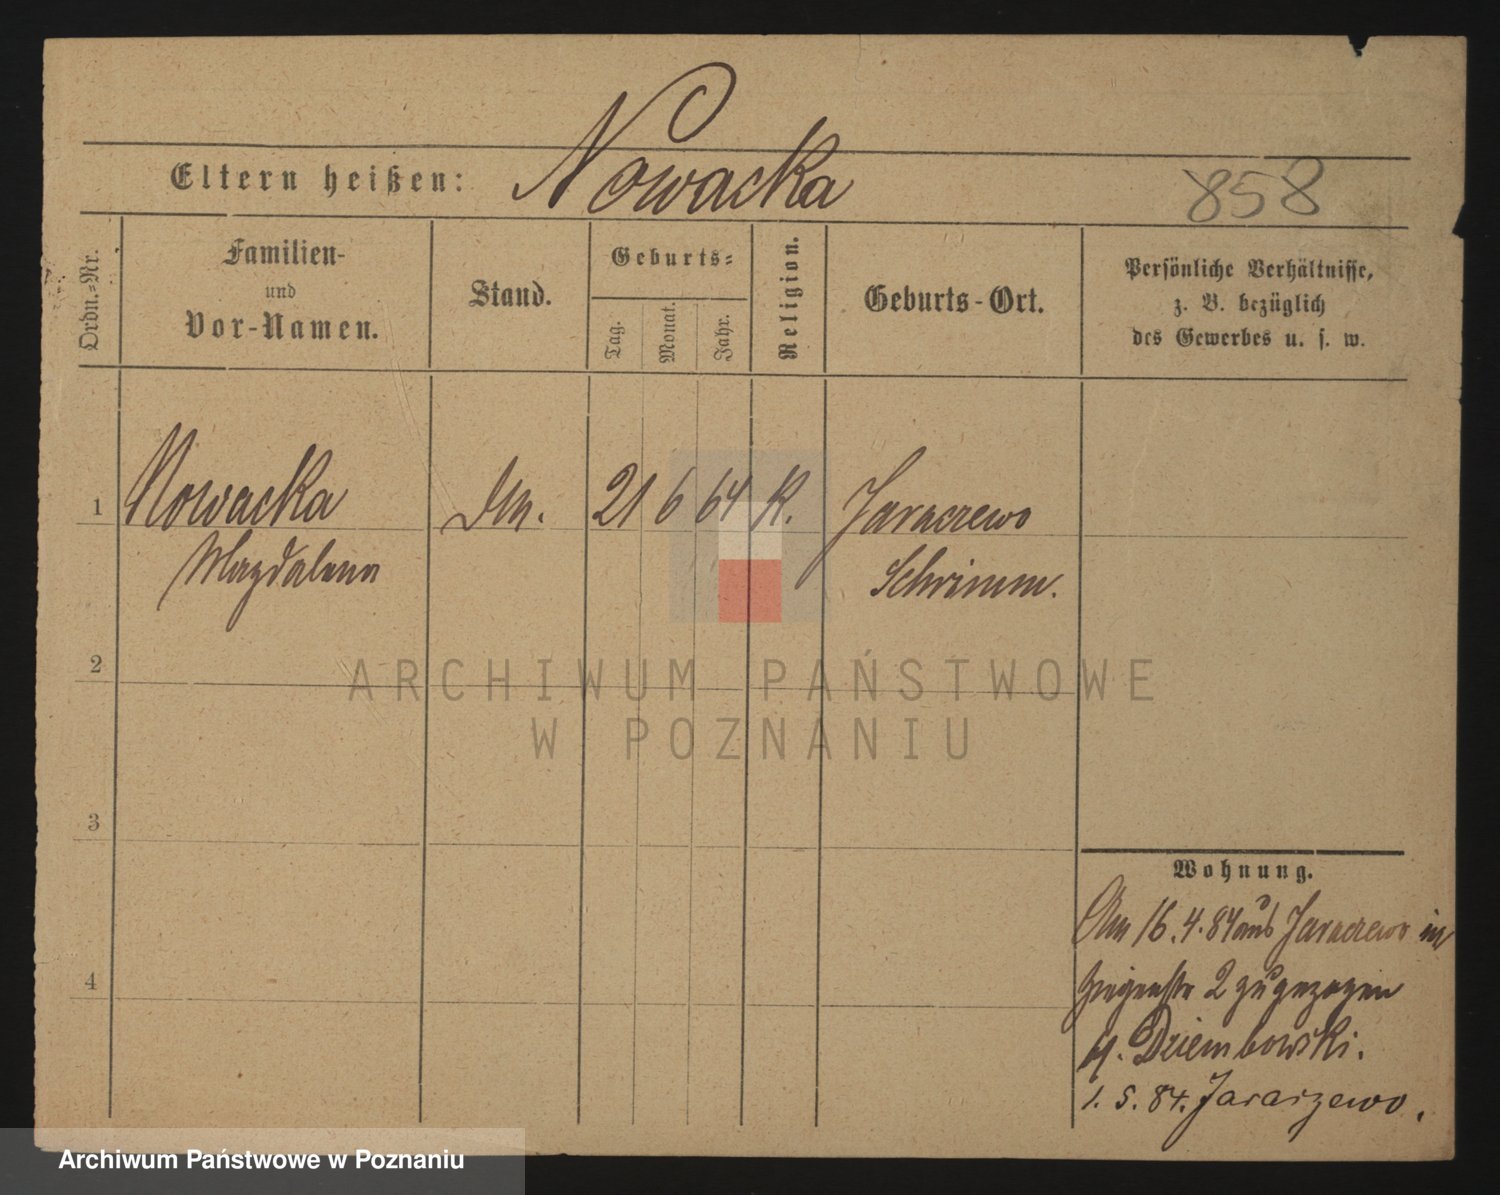 Eltern heißen: Nowacka
858
Ordn.-Nr.
Familien-
und
Vor-Namen.
Stand.
Geburts-
Tag.
Monat.
Jahr.
Religion.
Geburts-Ort.
Persönliche Verhältnisse,
z. B. bezüglich
des Gewerbes u. s. w.
1 Nowacka 21 6 64 K. Jaraczewo
Magdalena Schrimm.
2
ARCHIWUM PAŃSTWOWE
W POZNANIU
3
Wohnung.
Am 16.4.84 aus Jaraczewo in
2 zugezogen
4
Dziembowski.
1. 5. 84. Jaraczewo.
Archiwum Państwowe w Poznaniu